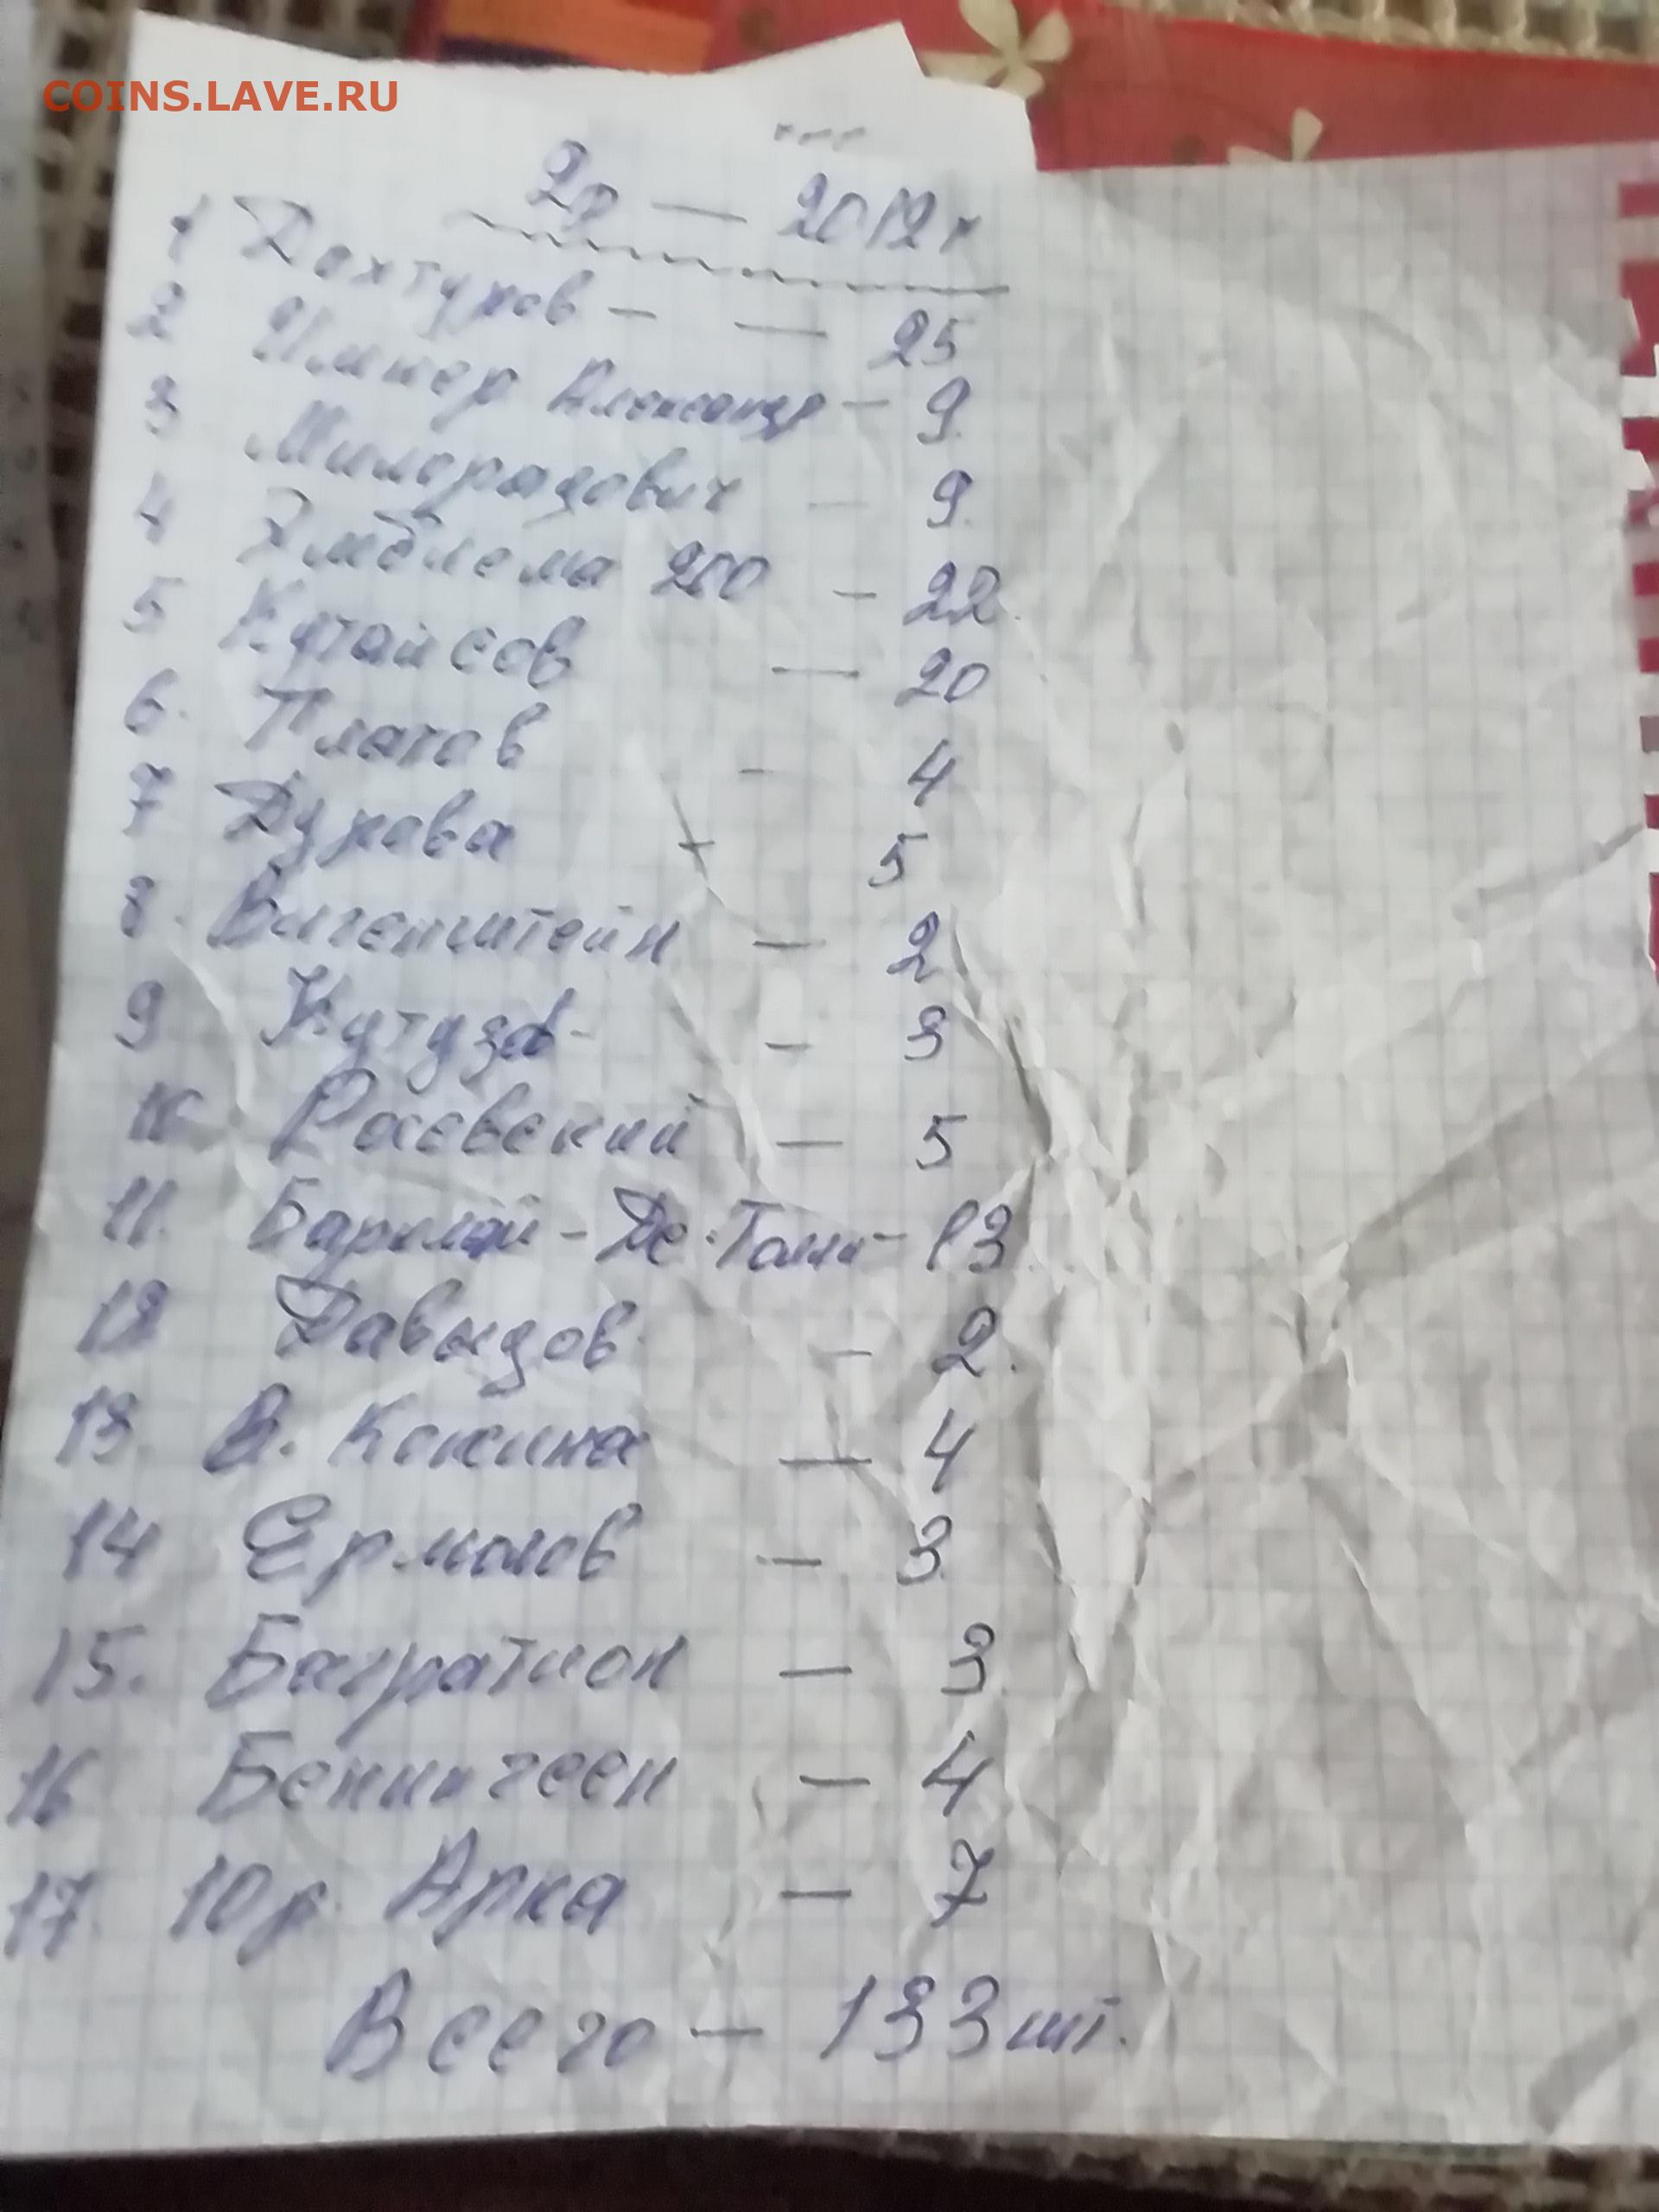 COINS.LAVE.RU
2р — 2012г
1 Дохтуров — — 25
2 Импер Александр — 9.
3 Милорадович — 9.
4 Эмблема 200 — 22.
5 Кутайсов — 20
6. Платов - 4
7 Дурова - 5
8. Витгенштейн — 2
9 Кутузов - 3
10 Раевский — 5
11. Барклай - Де-Толли - 13.
12 Давыдов - 2.
13. В. Кожина — 4
14 Ермолов — 3.
15. Багратион — 3
16 Бенигсен — 4
17. 10р. Арка — 7
Всего — 133шт.